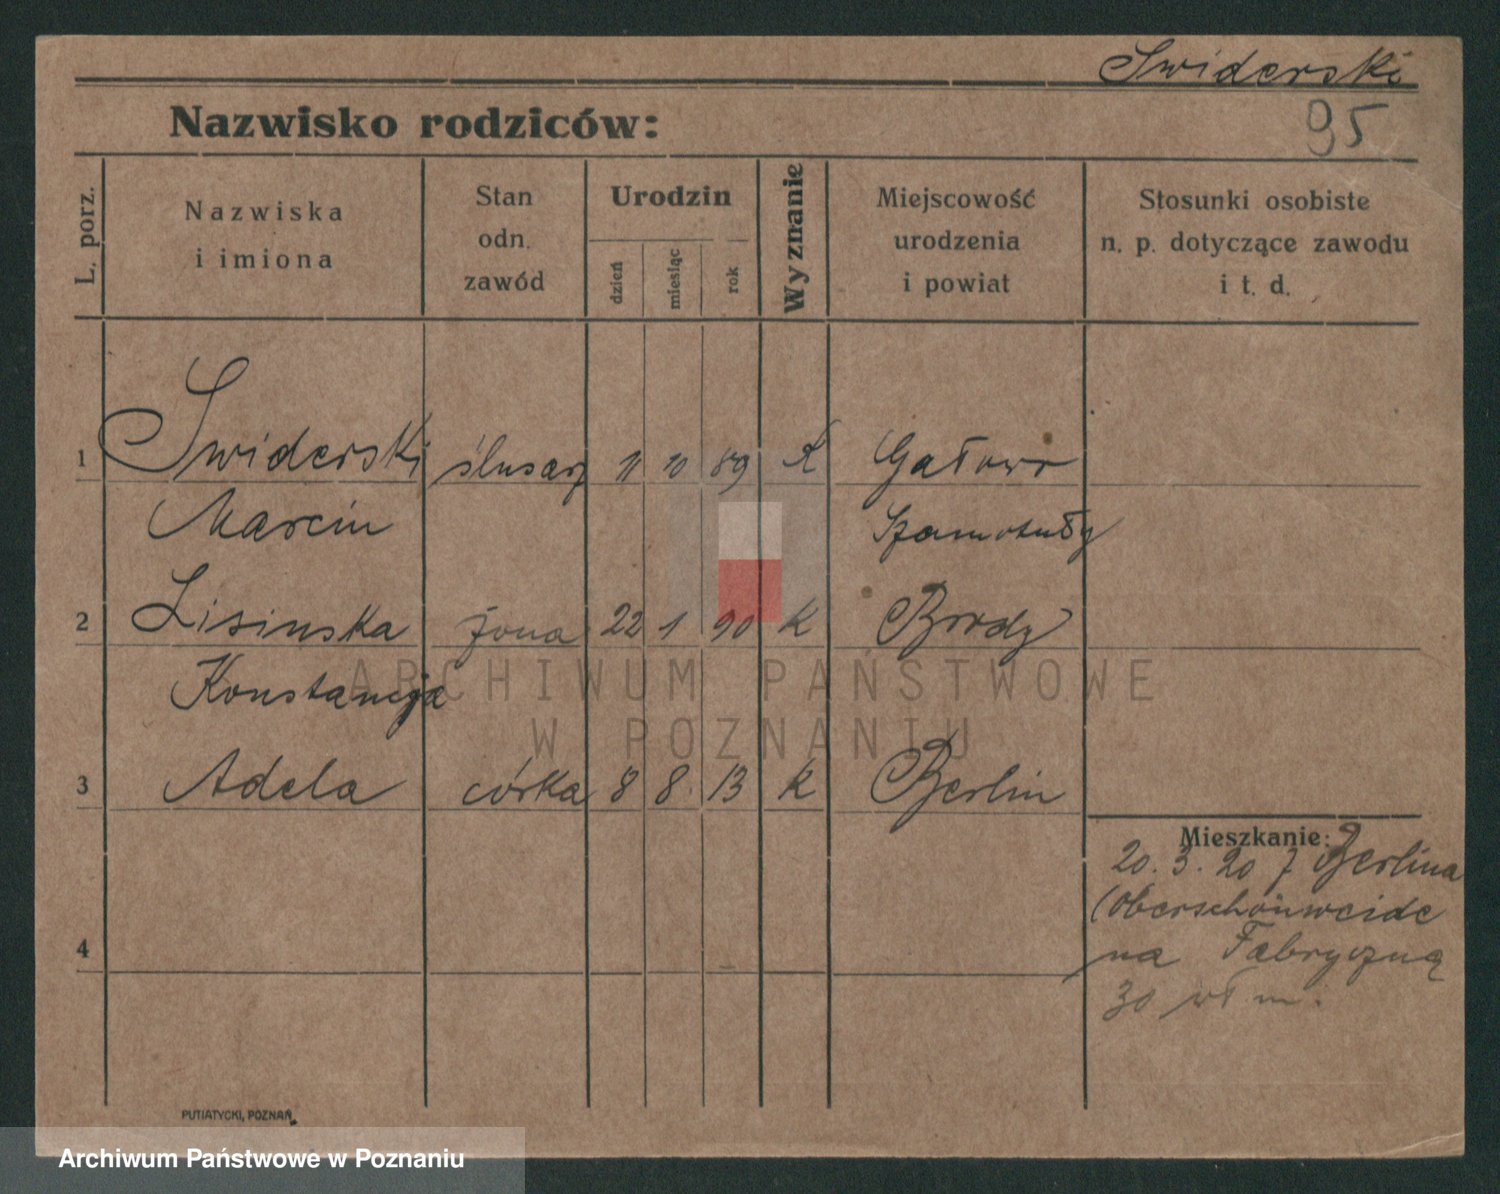 Swiderski
Nazwisko rodziców:
95
L. porz.
Nazwiska
i imiona
Stan
odn.
zawód
Urodzin
dzień
miesiąc
rok
Wyznanie
Miejscowość
urodzenia
i powiat
Stosunki osobiste
n. p. dotyczące zawodu
i t. d.
1 Swiderski ślusarz 11 10 89 K Gałowo
Marcin Szamotuły
2 Lisinska żona 22 1 90 K Brody
Konstancja
ARCHIWUM PAŃSTWOWE
W POZNANIU
3 Adela córka 8 8. 13 K Berlin
Mieszkanie:
20. 3. 20 z Berlina
(Oberschönweide
na Fabryczną
30 wł m.
4
PUTIATYCKI, POZNAŃ.
Archiwum Państwowe w Poznaniu